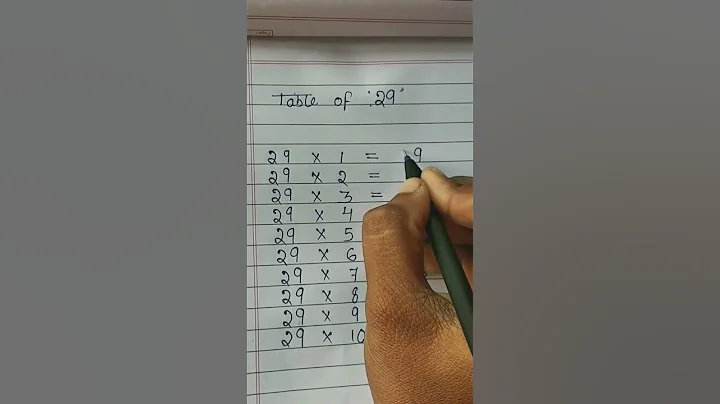 Table of "29"
29 × 1 = 9
29 × 2 =
29 × 3 =
29 × 4
29 × 5
29 × 6
29 × 7
29 × 8
29 × 9
29 × 10